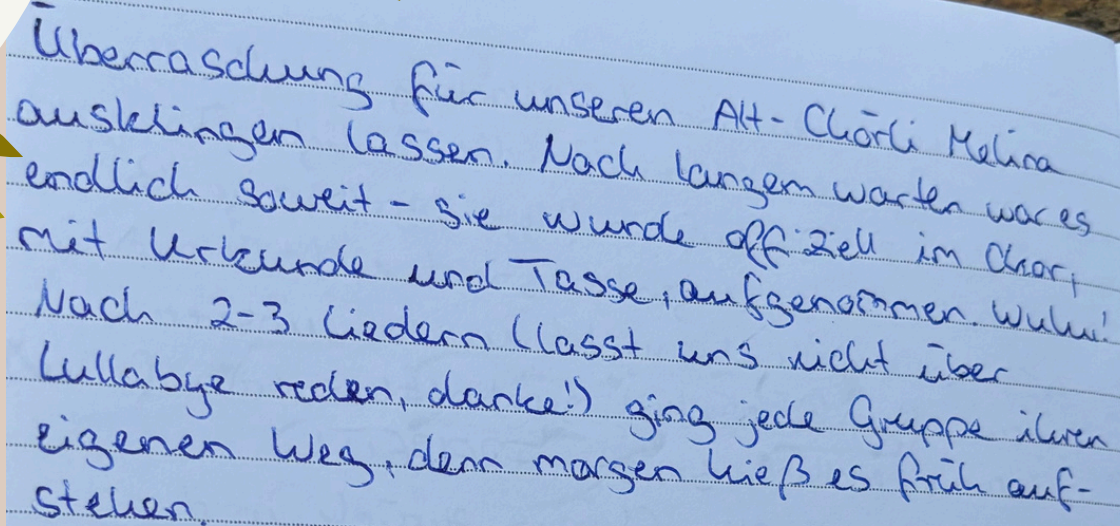 Überraschung für unseren Alt-Chörli Melina
ausklingen lassen. Nach langem warten war es
endlich soweit - sie wurde offiziell im Chor,
mit Urkunde und Tasse, aufgenommen. Wuhu!
Nach 2-3 Liedern (lasst uns nicht über
Lullabye reden, danke!) ging jede Gruppe ihren
eigenen Weg, denn morgen hieß es früh auf-
stehen.